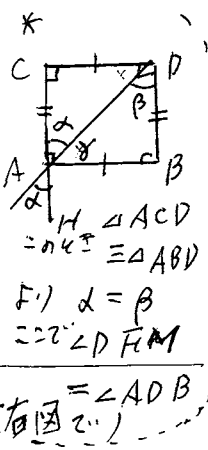 *
C D
α β
A B
α H △ACD
このとき ≡△ABD
より α = β
ここで ∠D
= ∠ADB
右図で